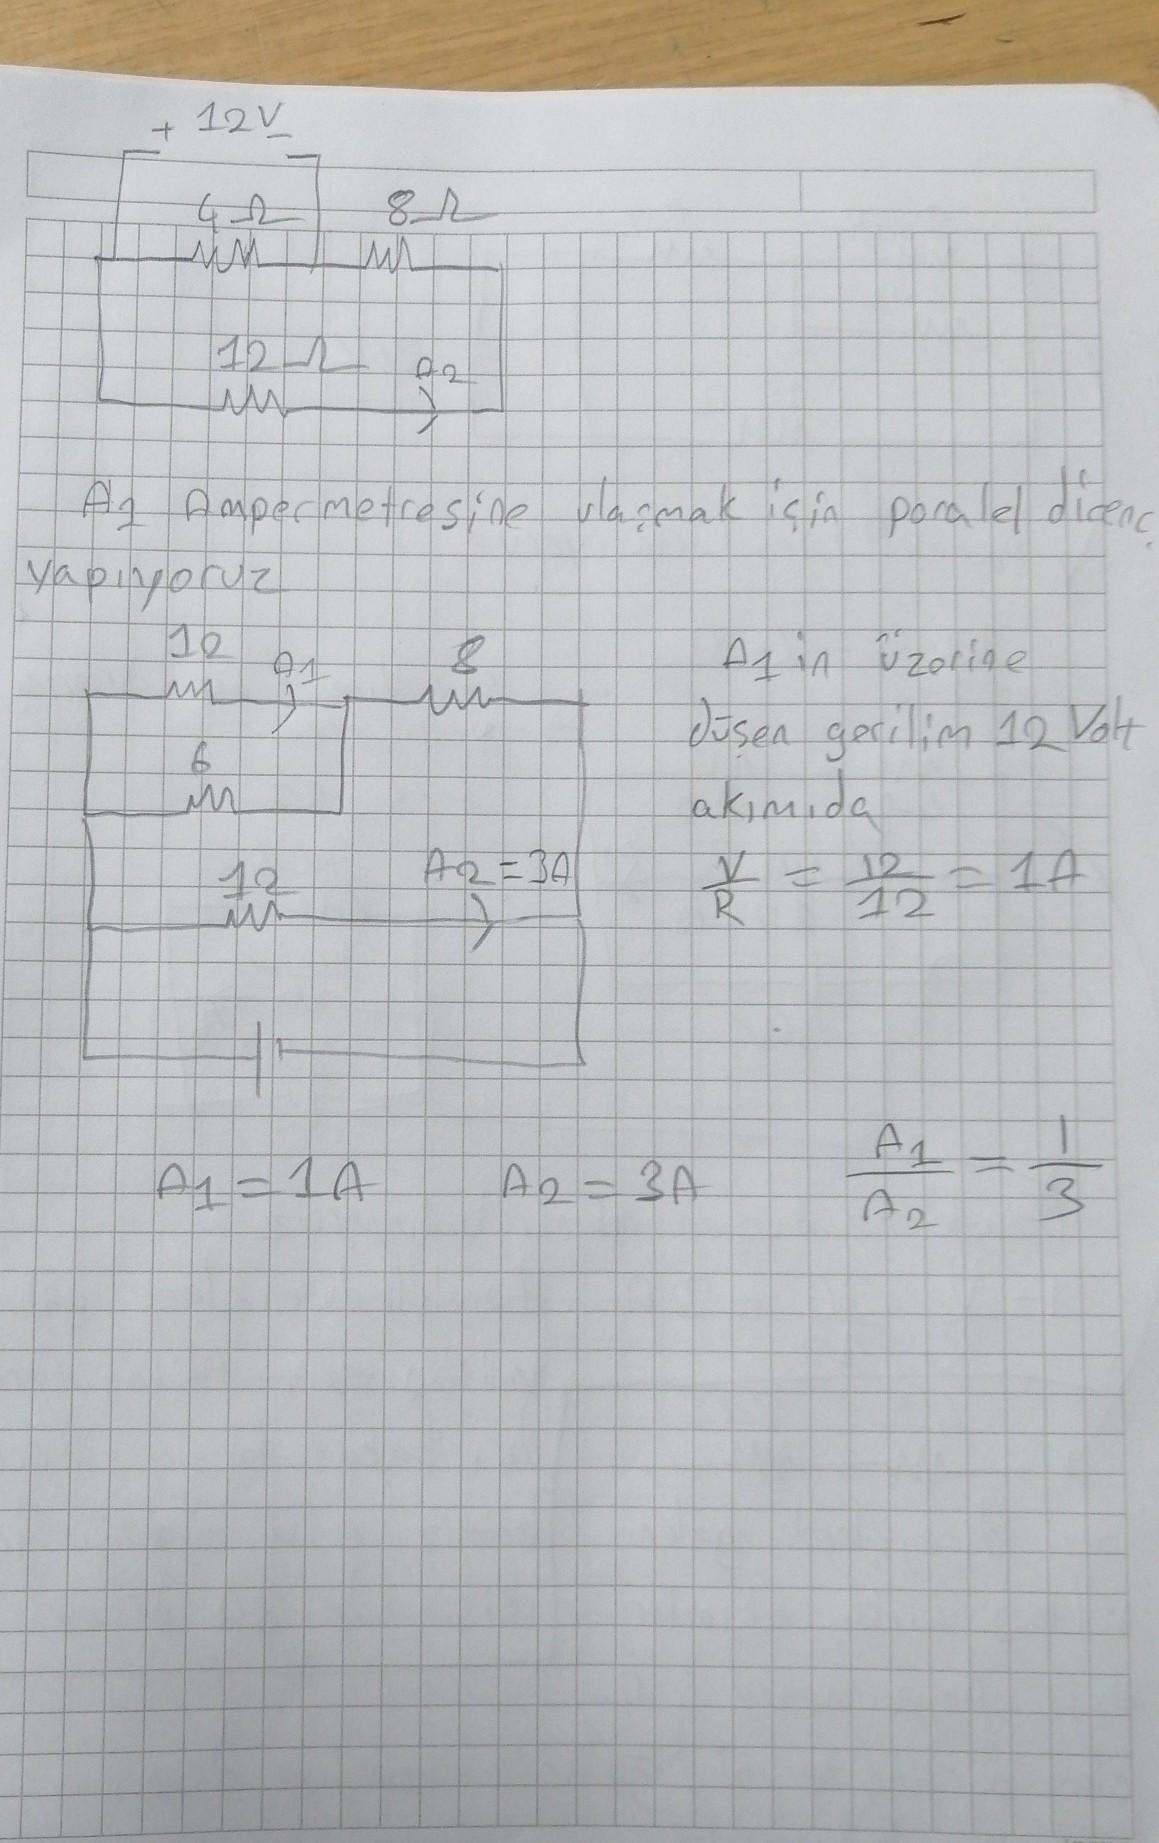 + 12V -
4Ω 8Ω
12Ω A2
A1 Ampermetresine ulaşmak için paralel direnç
yapıyoruz
12 A1 8
6
12 A2=3A
A1 in üzerine
düşen gerilim 12 Volt
akımıda
V/R = 12/12 = 1A
A1=1A A2=3A A1/A2 = 1/3